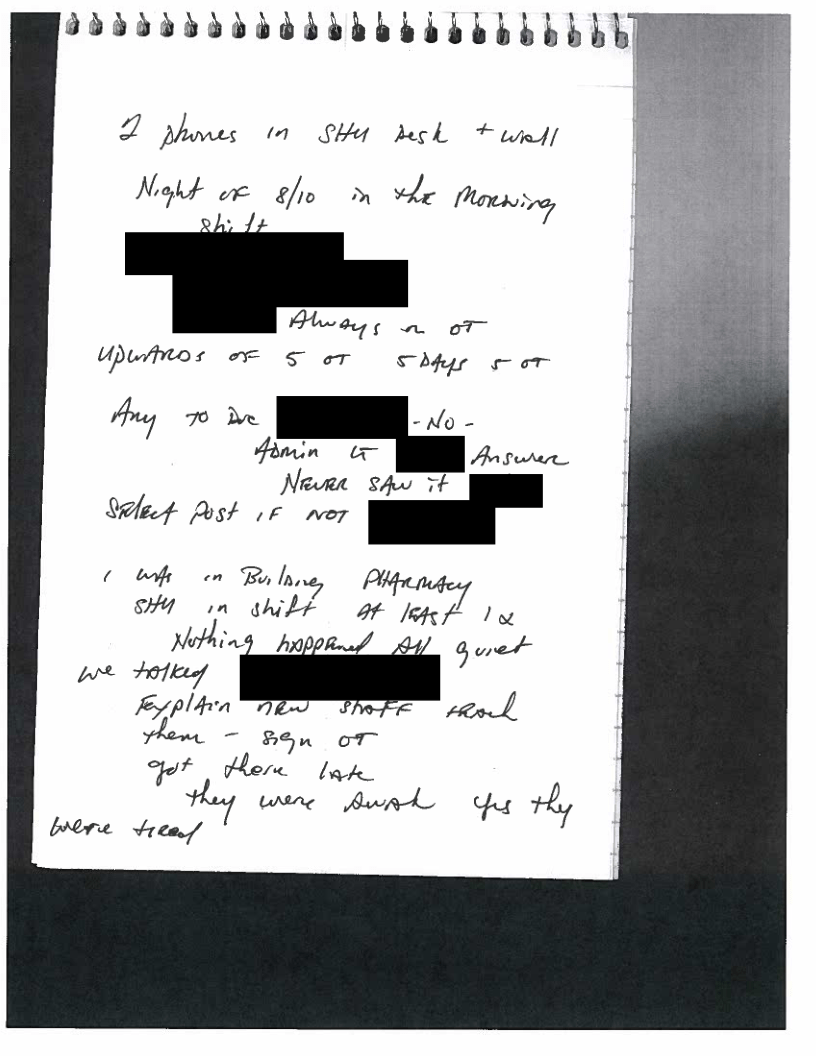 2 phones in SHU Desk + wall
Night of 8/10 in the Morning
shift
Always on OT
Upwards of 5 OT 5 Days 5 OT
Any to Doc - No -
Admin LT Answer
Never saw it
Select Post if not
I was in Building Pharmacy
SHU in shift At least 1x
Nothing happened All quiet
we talked
Explain new staff teach
them - sign OT
got there late
they were awake yes they
were tired